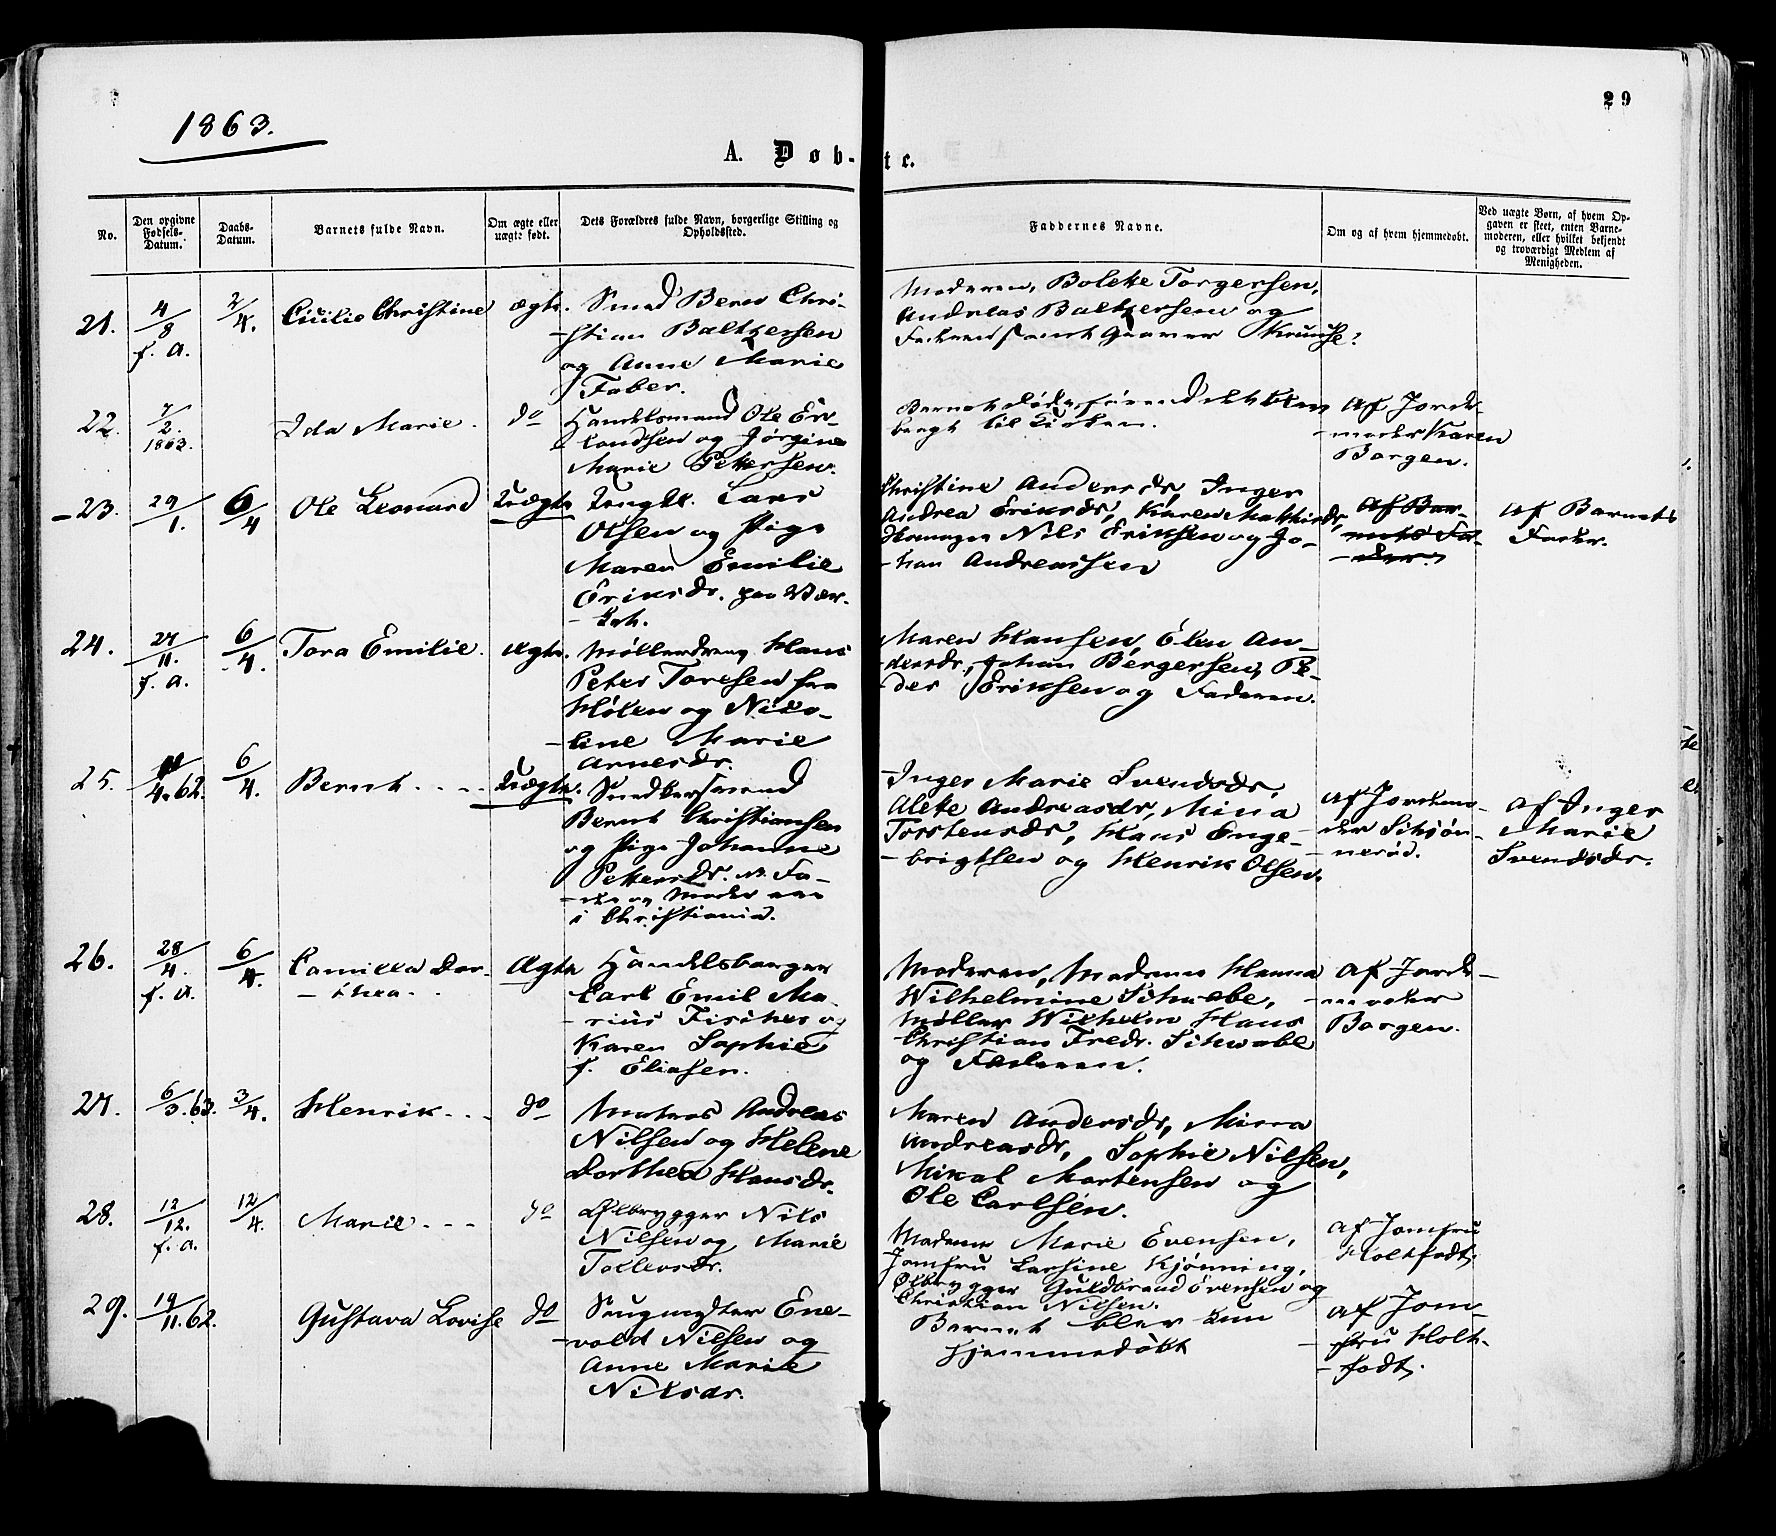 1863.
29
A. Døb-te.
No.
Den opgivne Fødsels-Datum.
Daabs-Datum.
Barnets fulde Navn.
Om ægte eller uægte født.
Dets Forældres fulde Navn, borgerlige Stilling og Opholdssted.
Faddernes Navne.
Om og af hvem hjemmedøbt.
Ved uægte Børn, af hvem Opgaven er skeet, enten Barnemoderen, eller hvilket bekjendt og troværdigt Medlem af Menigheden.
21.
4/8 f. a.
2/4.
Cicilie Christine
ægte.
Smed Bern Chri-
-stian Baltzersen
og Anne Marie
Faber.
Moderen, Bolette Torgersen,
Andreas Baltzersen og
Faderen samt Gunner
22.
7/2. 1863.
Ida Marie.
do
Handelsmand Ole Er-
landsen og Jørgine
Marie Pettersen.
Barnet døde førend det blev
bragt til Kirken.
Af Jorde-
-moder Karen
Borgen.
-23.
29/1.
6/4
Ole Leonard
Uægte
Ungk. Lars
Olsen og Pige
Maren Emilie
Eriksdr. paa Vær-
-
Christine Andersdr, Inger
Andrea Eriksdr, Karen Mathisdr,
Nils Eriksen og Jo-
-han Andreassen
Af Bar-
nets Fa-
-der.
Af Barnets
Fader.
24.
27/11. f. a.
6/4.
Tora Emilie.
ægte.
Møllerdreng Hans
Peter Toresen fra
Hølen og Niko-
-line Marie
Arnesdr.
Maren Hansen, Elen An-
-dersdr, Johan Bergersen, Pe-
-der Eriksen og Faderen.
25.
4.62.
6/4.
Bernt. . . .
Uægte.
Snedkersvend
Bernt Christiansen
og Pige Johanne
Pettersdr. Fa-
-der og Moder
i Christiania.
Inger Marie Svendsdr,
Alette Andreasdr, Mina
Torstensdr, Hans Enge-
-brigtsen og Henrik Olsen.
Af Jordemo-
-der
-nerød.
Af Inger
Marie
Svendsdr.
26.
28/4. f. a.
6/4.
Camilla Dor-
-thea. .
Ægte
Handelsborger
Carl Emil Ma-
-rius Fischer og
Karen Sophie
f. Eliasen.
Moderen, Madame Hanna
Wilhelmine Schwabe,
Møller Wilhelm Hans
Christian Fredr. Schwabe
og Faderen.
Af Jorde-
-moder
Borgen.
27.
6/3.63.
3/4.
Henrik. . .
do
Matros Andreas
Nilsen og Helene
Dorthea Hansdr.
Maren Andersdr, Mina
Andreasdr, Sophie Nilsen,
Mikal Martensen og
Ole Carlsen.
28.
12/12. f. a.
12/4.
Marie. . .
do
Ølbrygger Nils
Nilsen og Marie
Tollevsdr.
Madame Marie Evensen,
Jomfru Larsine Kjønning,
Ølbrygger Guldbrand Evensen og
Christian Nilsen.
Af Jomfru
Holtfodt.
29.
19/11.62.
Gustava Lovise
do
Saugmester Ene-
-vold Nilsen og
Anne Marie
Nilsdr.
Barnet blev kun
hjemmedøbt
Af Jom-
-fru Holt-
-fodt.